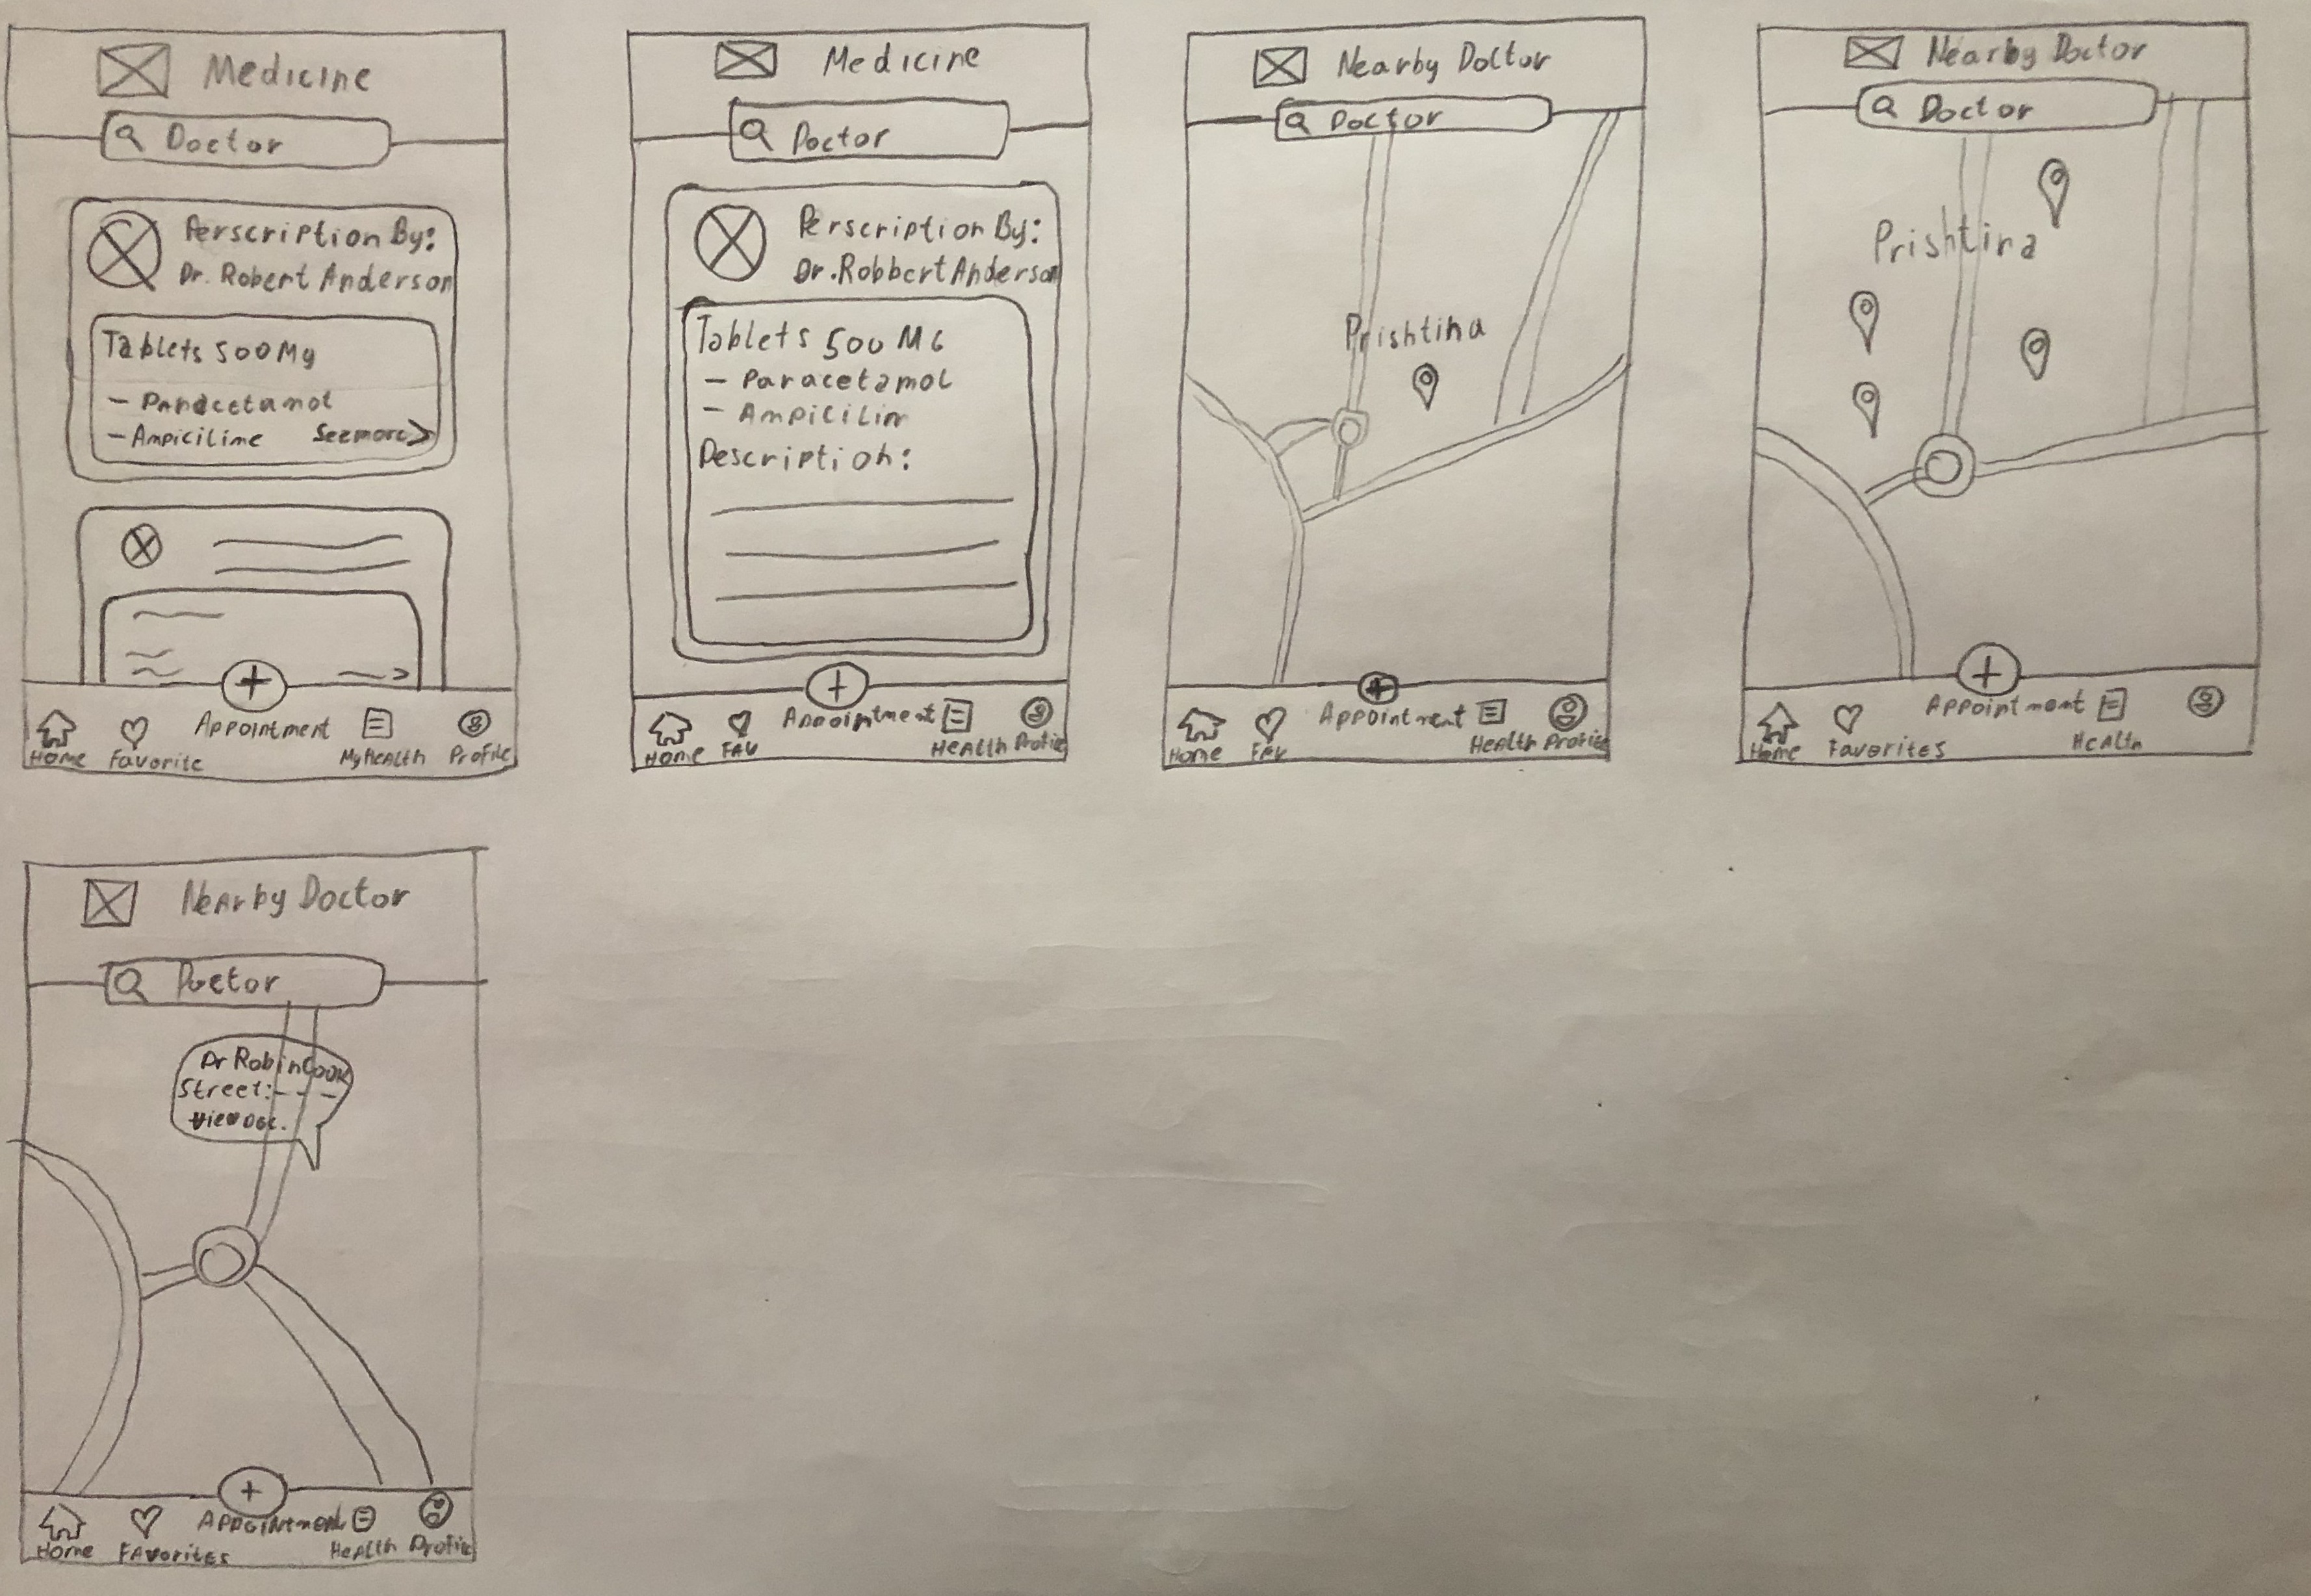 Medicine
Doctor
Perscription By:
Dr. Robert Anderson
Tablets 500 Mg
- Paracetamol
- Ampicilime
See more >
Home
Favorite
Appointment
My Health
Profile
Medicine
Doctor
Perscription By:
Dr. Robbert Anderson
Tablets 500 MG
- Paracetamol
- Ampicilin
Description:
Home
FAV
Appointment
Health
Profile
Nearby Doctor
Doctor
Prishtina
Home
FAV
Appointment
Health
Profile
Nearby Doctor
Doctor
Prishtina
Home
Favorites
Appointment
Health
Nearby Doctor
Doctor
Dr Robin Cook
Street: - - -
View Doc.
Home
Favorites
Appointment
Health
Profile